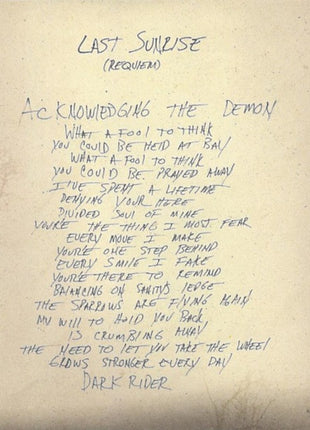 LAST SUNRISE
(REQUIEM)
ACKNOWLEDGING THE DEMON
WHAT A FOOL TO THINK
YOU COULD BE HELD AT BAY
WHAT A FOOL TO THINK
YOU COULD BE PRAYED AWAY
I'VE SPENT A LIFETIME
DENYING YOUR HERE
DIVIDED SOUL OF MINE
YOU'RE THE THING I MOST FEAR
EVERY MOVE I MAKE
YOU'RE ONE STEP BEHIND
EVERY SMILE I FAKE
YOU'RE THERE TO REMIND
BALANCING ON SANITYS LEDGE
THE SPARROWS ARE FLYING AGAIN
MY WILL TO HOLD YOU BACK
IS CRUMBLING AWAY
THE NEED TO LET YOU TAKE THE WHEEL
GROWS STRONGER EVERY DAY
DARK RIDER